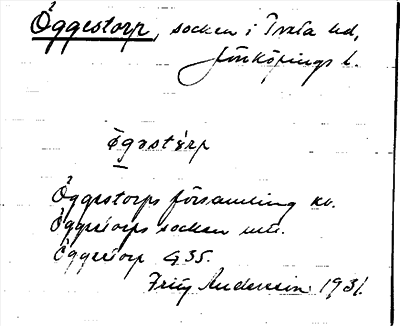 Öggestorp, socken i Tveta hd,
Jönköpings l.
Öggestorps församling kv.
Öggestorps socken
Öggestorp G35.
Fritz Andersson 1931.